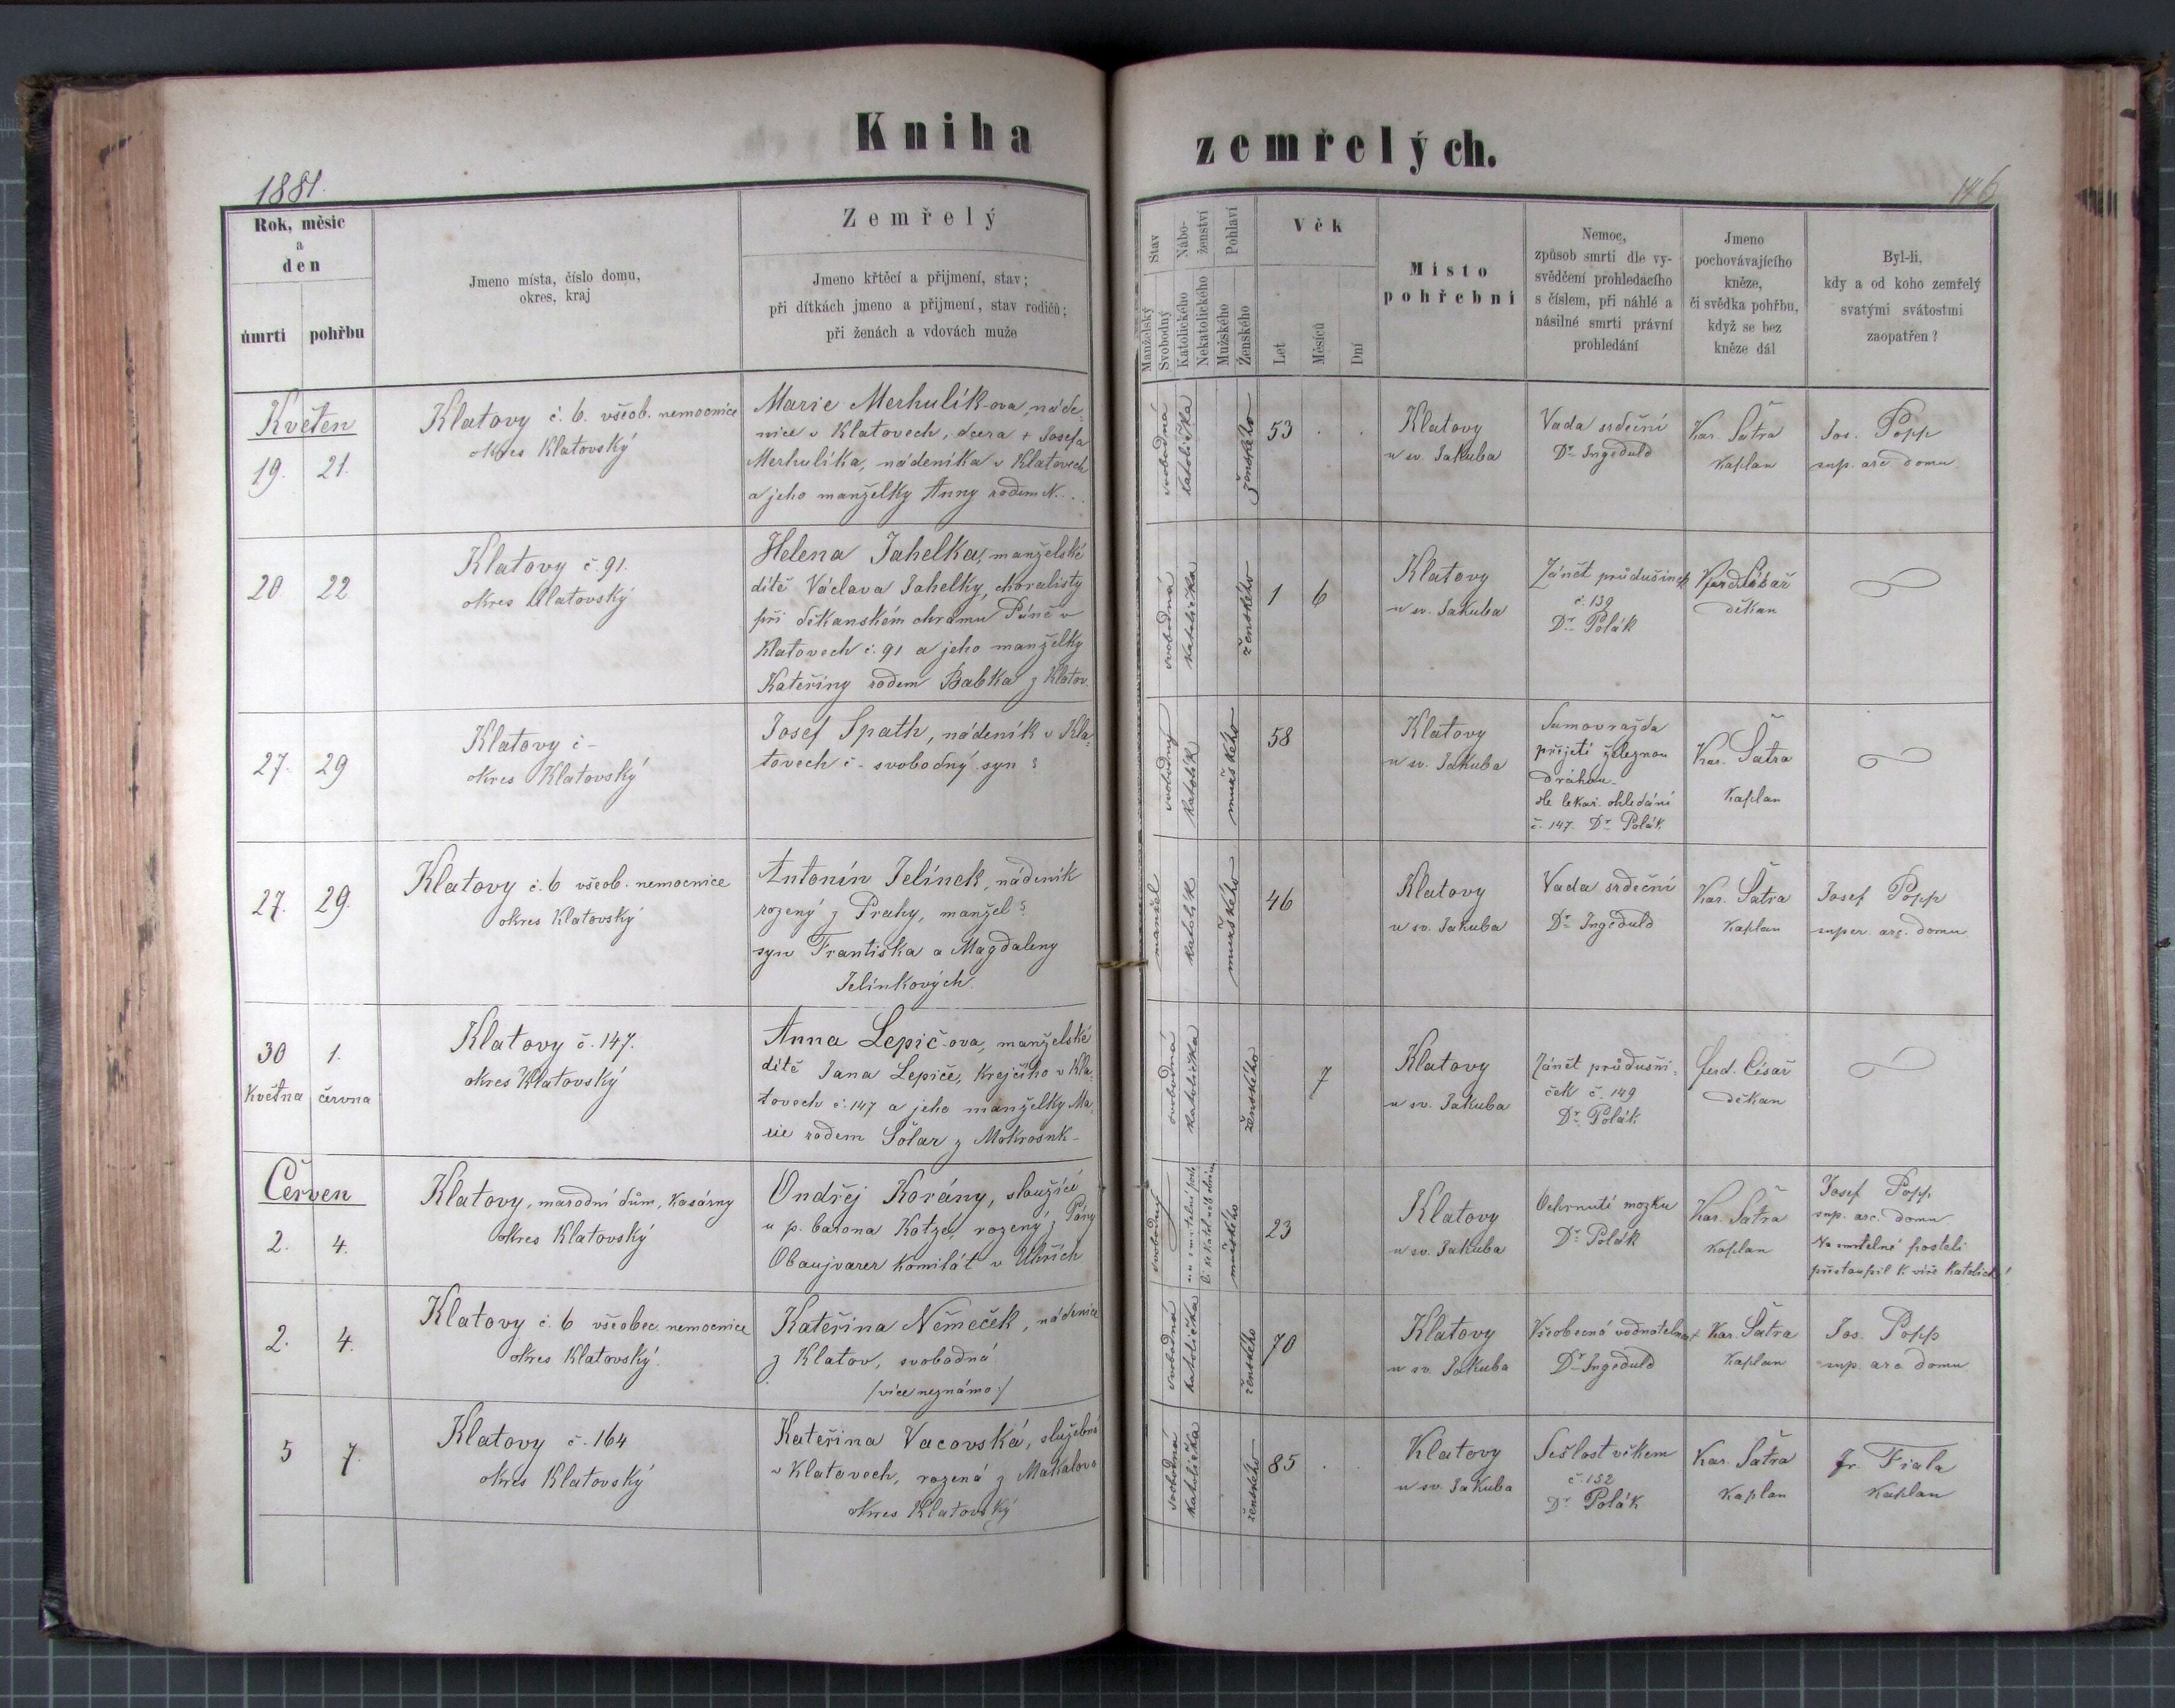 Kniha zemřelých.
1881.
146
Rok, měsíc
a
den
úmrtí
pohřbu
Jmeno místa, číslo domu,
okres, kraj
Zemřelý
Jmeno křtěcí a přijmení, stav;
při dítkách jmeno a přijmení, stav rodičů;
při ženách a vdovách muže
Stav
Manželský
Svobodný
Nábo-
ženství
Katolického
Nekatolického
Pohlaví
Mužského
Ženského
Věk
Let
Měsíců
Dní
Místo
pohřební
Nemoc,
způsob smrti dle vy-
svědčení prohledacího
s číslem, při náhlé a
násilné smrti právní
prohledání
Jmeno
pochovávajícího
kněze,
či svědka pohřbu,
když se bez
kněze dál
Byl-li,
kdy a od koho zemřelý
svatými svátostmi
zaopatřen?
Květen
19. 21.
Klatovy č. 6. všeob. nemocnice
okres Klatovský
Marie Merhulík-ova, náde-
nice v Klatovech, dcera + Josefa
Merhulíka, nádeníka v Klatovech
a jeho manželky Anny rodem N...
svobodná
katolička
ženského
53 . .
Klatovy
u sv. Jakuba
Vada srdeční
Dr. Ingeduld
Kar. Šatra
Kaplan
Jos. Popp
sup. arc. domu
20 22
Klatovy č. 91.
okres Klatovský
Helena Jahelka, manželské
dítě Václava Jahelky, choralisty
při děkanském chrámu Páně v
Klatovech č. 91 a jeho manželky
Kateřiny rodem Babka z Klatov.
svobodná
katolička
ženského
1 6
Klatovy
u sv. Jakuba
Zánět průdušinek
č. 139
Dr. Polák
Ferd. Císař
děkan
27. 29
Klatovy č -
okres Klatovský
Josef Spath, nádeník v Kla-
tovech č - svobodný syn ?
svobodný
Katolík
mužského
58
Klatovy
u sv. Jakuba
Samovražda
přejetí železnou
dráhou
dle lekař. ohledání
č. 147. Dr. Polák
Kar. Šatra
Kaplan
27. 29.
Klatovy č. 6 všeob. nemocnice
okres Klatovský
Antonín Jelínek, nádeník
rozený z Prahy, manžel ?
syn Františka a Magdaleny
Jelínkových
manžel
katolík
mužského
46
Klatovy
u sv. Jakuba
Vada srdeční
Dr. Ingeduld
Kar. Šatra
Kaplan
Josef Popp
super. arc. domu
30 1.
Května června
Klatovy č. 147.
okres Klatovský
Anna Lepič-ova, manželské
dítě Jana Lepiče, krejčího v Kla-
tovech č. 147 a jeho manželky Ma-
rie rodem Šolar z Mokrosuk-
svobodná
katolička
ženského
7
Klatovy
u sv. Jakuba
Zánět průduši-
ček č. 149
Dr. Polák
Ferd. Císař
děkan
Červen
2. 4.
Klatovy, marodní dům, Kasárny
okres Klatovský
Ondřej Korány, sloužící
u p. barona Kotze, rozený z Pány
Obaujvarer komitát v Uhřích
svobodný
mužského
23
Klatovy
u sv. Jakuba
Ochrnutí mozku
Dr. Polák
Kar. Šatra
Kaplan
Josef Popp
sup. arc. domu
Na smrtelné posteli
přistoupil k víře Katolické!
2. 4.
Klatovy č. 6 všeobec. nemocnice
okres Klatovský
Kateřina Němeček, nádenice
z Klatov, svobodná
/více neznámo:/
svobodná
katolička
ženského
70
Klatovy
u sv. Jakuba
Všeobecná vodnatelnost
Dr. Ingeduld
Kar. Šatra
Kaplan
Jos. Popp
sup. arc domu
5 7.
Klatovy č. 164
okres Klatovský
Kateřina Vacovská, služebná
v Klatovech, rozená z Makalova
okres Klatovský
svobodná
katolička
ženského
85 . .
Klatovy
u sv. Jakuba
Sešlost věkem
č. 152
Dr. Polák
Kar. Šatra
Kaplan
Fr. Fiala
Kaplan